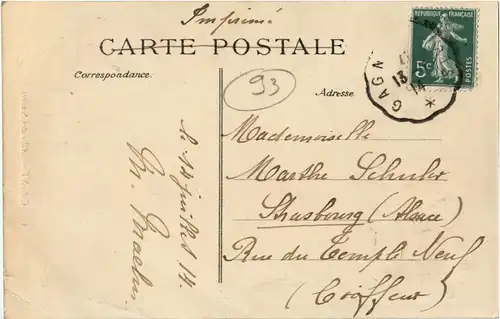 Imprimé
CARTE POSTALE
RÉPUBLIQUE FRANÇAISE
5c
POSTES
GAGN
13
14
*
Correspondance.
93
Adresse
le 14 juillet 14.
M.
Mademoiselle
Marthe Schuler
Strasbourg (Alsace)
Rue du Temple Neuf
(Coiffeur)